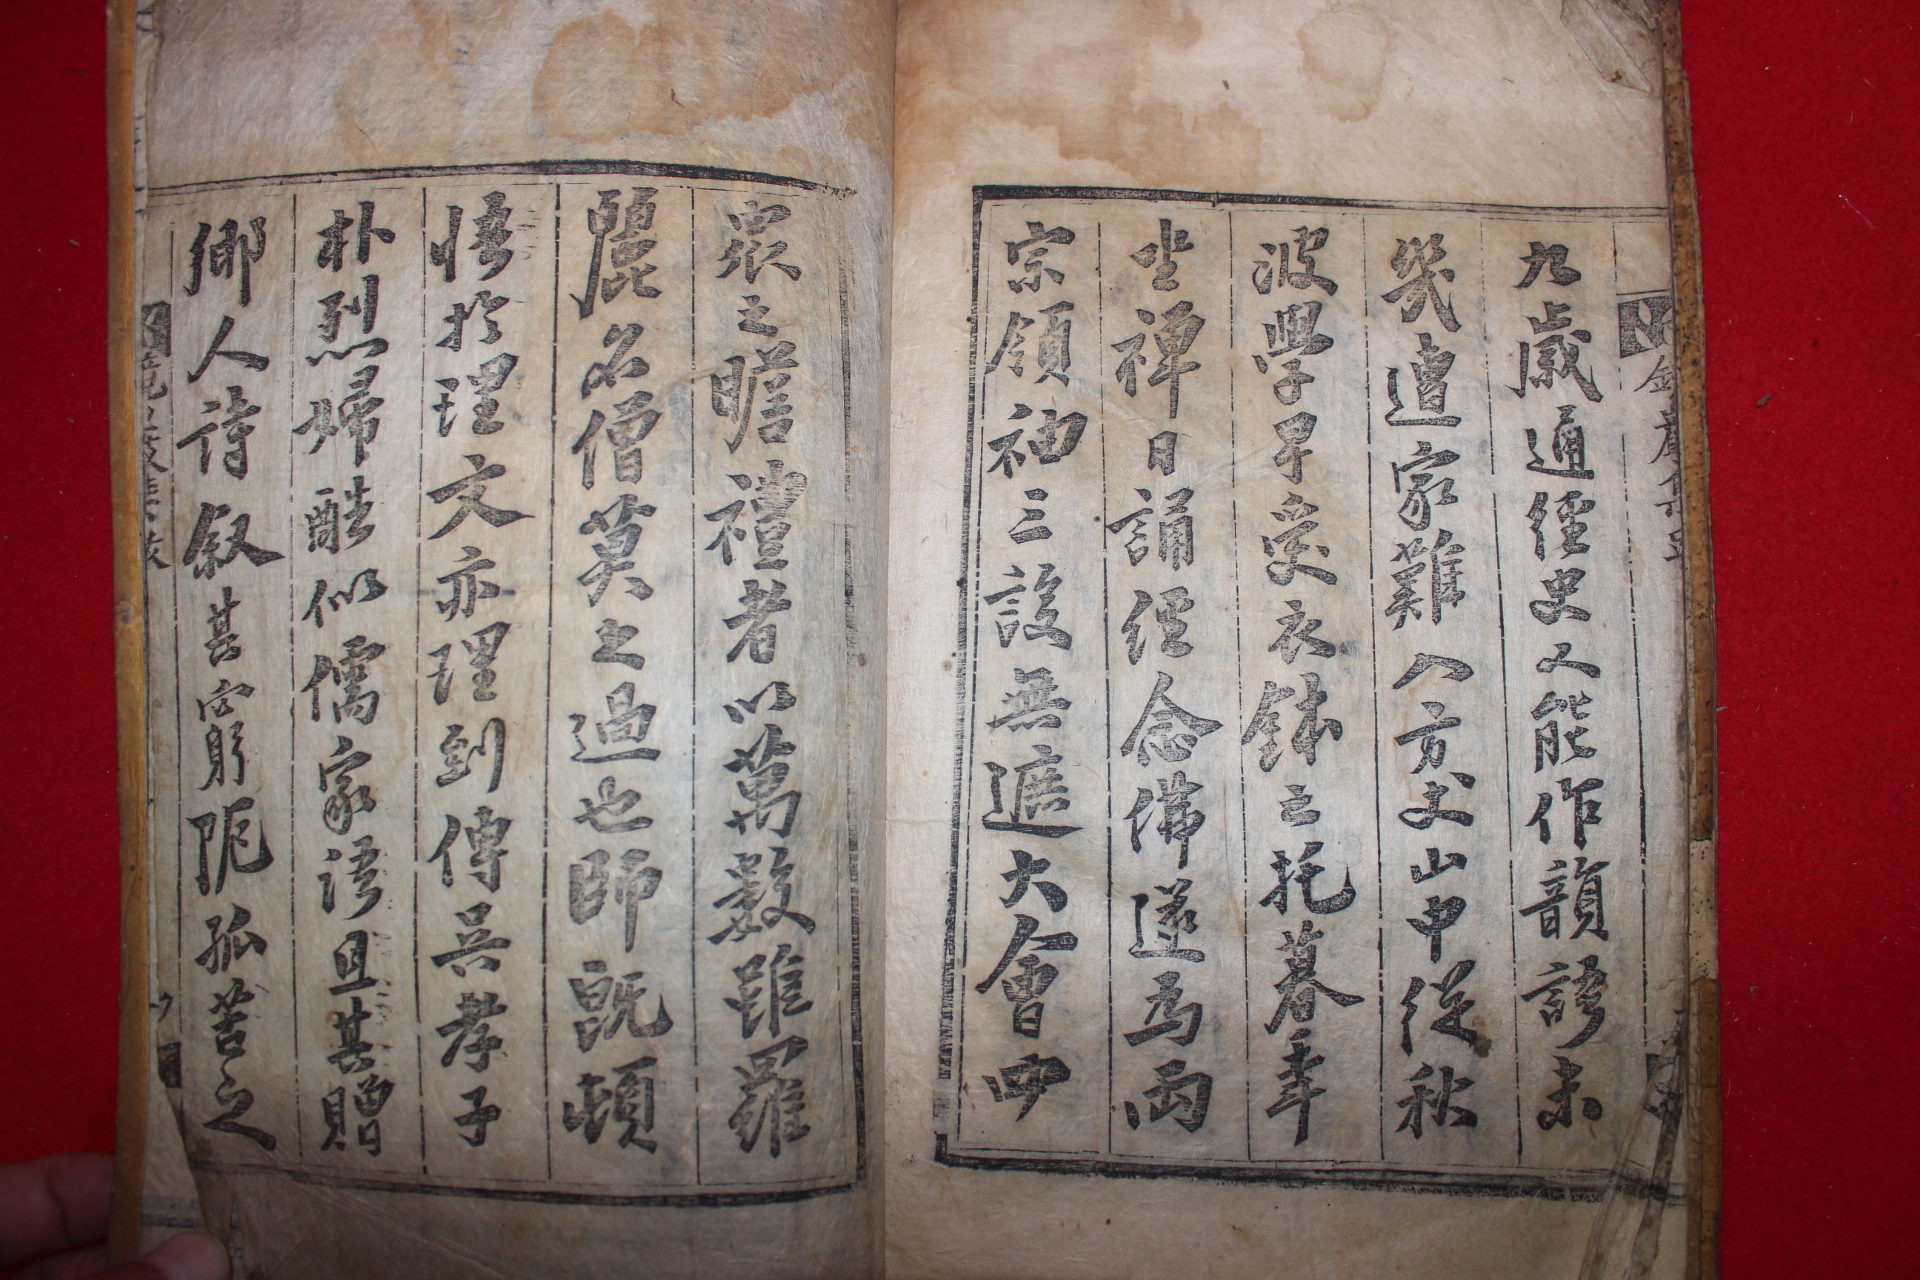 九歲通經史又能作韻語未
幾遭家難入方丈山中從秋
波學早受衣鉢之托暮年
坐禅日誦經念佛遂为两
宗領袖三設無遮大會四
衆之瞻禮者以萬數雖羅
麗名僧莫之過也師既頓
悟於理文亦理到傳吳孝子
朴烈婦酷似儒家語且其贈
鄉人詩叙甚窮阨孤苦之